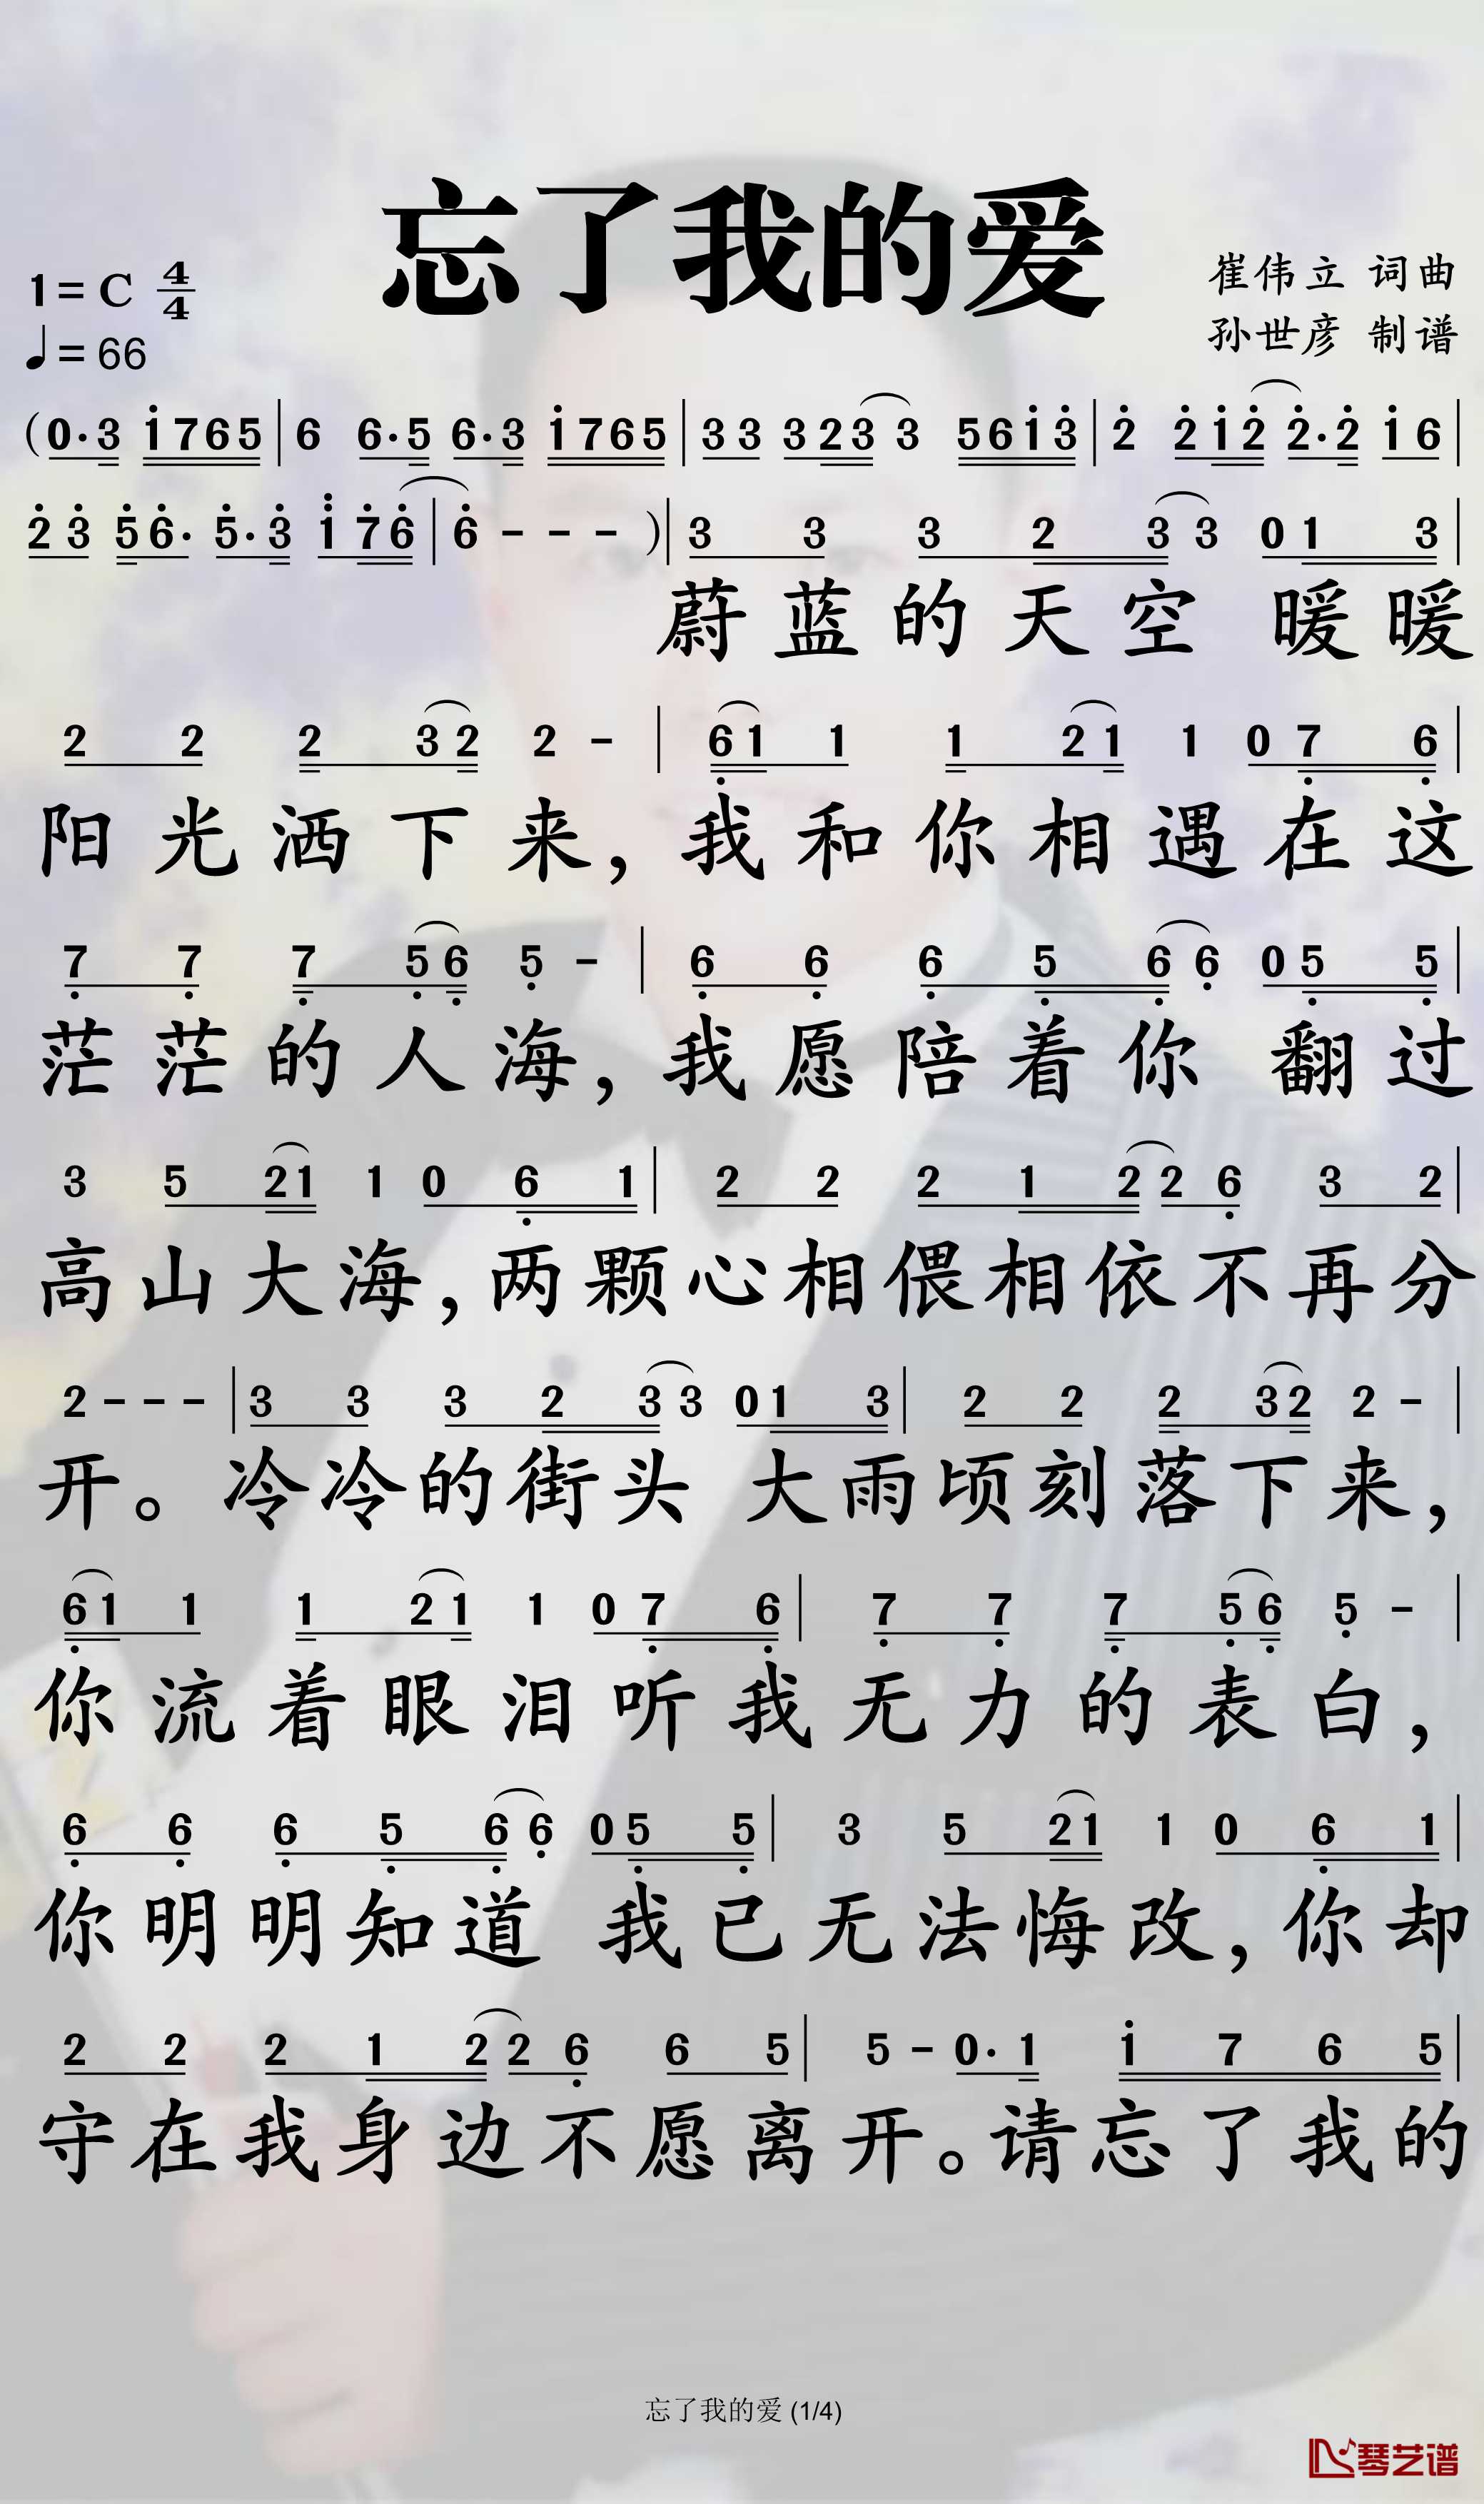 忘了我的爱
1=C 4/4
崔伟立 词曲
♩=66
孙世彦 制谱
(0·3 i765|6 6·5 6·3 i765|33 323 3 561̇3̇|2̇ 2̇1̇2̇ 2̇·2̇ 1̇6|
2̇3̇ 5̇6̇· 5̇·3̇ i̇7̇6̇|6̇ - - - )|3 3 3 2 3 3 0 1 3|
蔚蓝的天空 暖暖
2 2 2 3 2 2 -|6̣ 1 1 1 2 1 1 0 7̣ 6̣|
阳光洒下来,我和你相遇在这
7̣ 7̣ 7̣ 5̣ 6̣ 5̣ -|6̣ 6̣ 6̣ 5̣ 6̣ 6̣ 0 5̣ 5̣|
茫茫的人海,我愿陪着你 翻过
3 5 2 1 1 0 6̣ 1|2 2 2 1 2 2 6̣ 3 2|
高山大海,两颗心相偎相依不再分
2 - - -|3 3 3 2 3 3 0 1 3|2 2 2 3 2 2 -|
开。冷冷的街头 大雨顷刻落下来,
6̣ 1 1 1 2 1 1 0 7̣ 6̣|7̣ 7̣ 7̣ 5̣ 6̣ 5̣ -|
你流着眼泪听我无力的表白,
6̣ 6̣ 6̣ 5̣ 6̣ 6̣ 0 5̣ 5̣|3 5 2 1 1 0 6̣ 1|
你明明知道 我已无法悔改,你却
2 2 2 1 2 2 6̣ 6 5|5 - 0· 1 1̇ 7 6 5|
守在我身边不愿离开。请忘了我的
忘了我的爱 (1/4)
琴艺谱